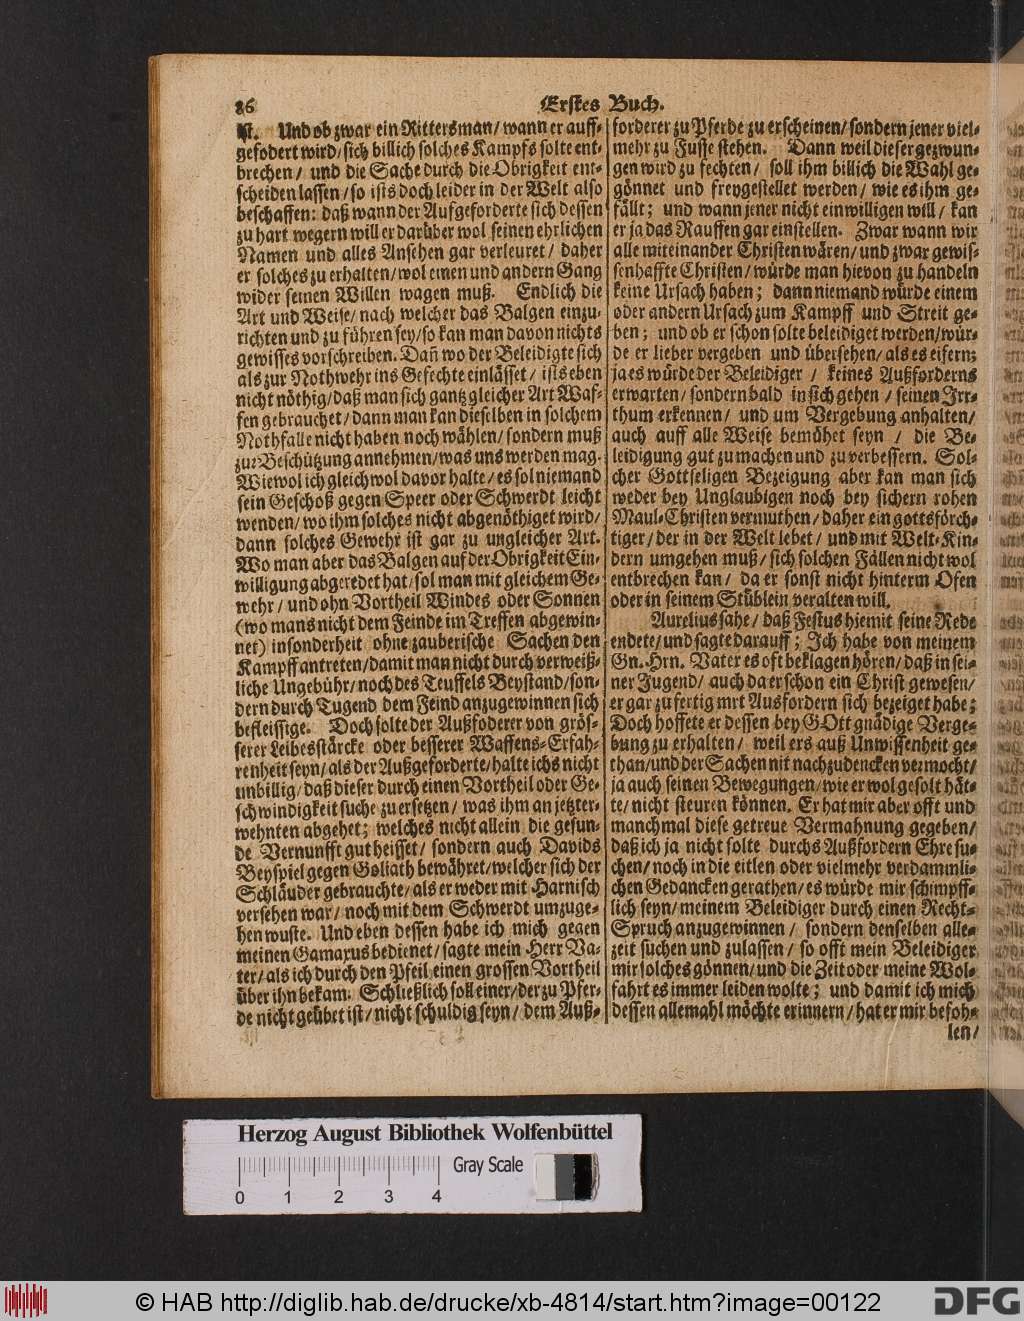 86
Erstes Buch.
ist. Und ob zwar ein Rittersman/ wann er auff-
gefodert wird/ sich billich solches Kampfs solte ent-
brechen/ und die Sache durch die Obrigkeit ent-
scheiden lassen/ so ists doch leider in der Welt also
beschaffen: daß wann der Aufgeforderte sich dessen
zu hart wegern will er darüber wol seinen ehrlichen
Namen und alles Ansehen gar verleuret/ daher
er solches zu erhalten/ wol einen und andern Gang
wider seinen Willen wagen muß. Endlich die
Art und Weise/ nach welcher das Balgen einzu-
richten und zu führen sey/ so kan man davon nichts
gewisses vorschreiben. Dañ wo der Beleidigte sich
als zur Nothwehr ins Gefechte einlässet/ ists eben
nicht nöthig/ daß man sich gantz gleicher Art Waf-
fen gebrauchet/ dann man kan dieselben in solchem
Nothfalle nicht haben noch wählen/ sondern muß
zur Beschützung annehmen/ was uns werden mag.
Wiewol ich gleichwol davor halte/ es sol niemand
sein Geschoß gegen Speer oder Schwerdt leicht
wenden/ wo ihm solches nicht abgenöthiget wird/
dann solches Gewehr ist gar zu ungleicher Art.
Wo man aber das Balgen auf der Obrigkeit Ein-
willigung abgeredet hat/ sol man mit gleichem Ge-
wehr/ und ohn Vortheil Windes oder Sonnen
(wo mans nicht dem Feinde im Treffen abgewin-
net) insonderheit ohne zauberische Sachen den
Kampff antreten/ damit man nicht durch verweiß-
liche Ungebühr/ noch des Teuffels Beystand/ son-
dern durch Tugend dem Feind anzugewinnen sich
befleissige. Doch solte der Außfoderer von grös-
serer Leibesstärcke oder besserer Waffens-Erfah-
renheit seyn/ als der Außgeforderte/ halte ichs nicht
unbillig/ daß dieser durch einen Vortheil oder Ge-
schwindigkeit suche zu ersetzen/ was ihm an jetzter-
wehnten abgehet; welches nicht allein die gesun-
de Vernunfft gut heisset/ sondern auch Davids
Beyspiel gegen Goliath bewähret/ welcher sich der
Schläuder gebrauchte/ als er weder mit Harnisch
versehen war/ noch mit dem Schwerdt umzuge-
hen wuste. Und eben dessen habe ich mich gegen
meinen Gamaxus bedienet/ sagte mein Herr Va-
ter/ als ich durch den Pfeil einen grossen Vortheil
über ihn bekam. Schließlich soll einer/ der zu Pfer-
de nicht geübet ist/ nicht schuldig seyn/ dem Auß-
forderer zu Pferde zu erscheinen/ sondern jener viel-
mehr zu Fusse stehen. Dann weil dieser gezwun-
gen wird zu fechten/ soll ihm billich die Wahl ge-
gönnet und freygestellet werden/ wie es ihm ge-
fällt; und wann jener nicht einwilligen will/ kan
er ja das Rauffen gar einstellen. Zwar wann wir
alle miteinander Christen wären/ und zwar gewis-
senhaffte Christen/ würde man hievon zu handeln
keine Ursach haben; dann niemand würde einem
oder andern Ursach zum Kampff und Streit ge-
ben; und ob er schon solte beleidiget werden/ wür-
de er lieber vergeben und übersehen/ als es eifern;
ja es würde der Beleidiger/ keines Außforderns
erwarten/ sondern bald in sich gehen/ seinen Irr-
thum erkennen/ und um Vergebung anhalten/
auch auff alle Weise bemühet seyn/ die Be-
leidigung gut zu machen und zu verbessern. Sol-
cher Gottseligen Bezeigung aber kan man sich
weder bey Unglaubigen noch bey sichern rohen
Maul-Christen vermuthen/ daher ein gottsförch-
tiger/ der in der Welt lebet/ und mit Welt-Kin-
dern umgehen muß/ sich solchen Fällen nicht wol
entbrechen kan/ da er sonst nicht hinterm Ofen
oder in seinem Stüblein veralten will.
Aurelius sahe/ daß Festus hiemit seine Rede
endete/ und sagte darauff; Ich habe von meinem
Gn. Hrn. Vater es oft beklagen hören/ daß in sei-
ner Jugend/ auch da er schon ein Christ gewesen/
er gar zu fertig mit Ausfordern sich bezeiget habe;
Doch hoffete er dessen bey GOtt gnädige Verge-
bung zu erhalten/ weil ers auß Unwissenheit ge-
than/ und der Sachen nit nachzudencken vermocht/
ja auch seinen Bewegungen/ wie er wol gesolt hät-
te/ nicht steuren können. Er hat mir aber offt und
manchmal diese getreue Vermahnung gegeben/
daß ich ja nicht solte durchs Außfordern Ehre su-
chen/ noch in die eitlen oder vielmehr verdammli-
chen Gedancken gerathen/ es würde mir schimpff-
lich seyn/ meinem Beleidiger durch einen Recht-
Spruch anzugewinnen/ sondern denselben alle-
zeit suchen und zulassen/ so offt mein Beleidiger
mir solches gönnen/ und die Zeit oder meine Wol-
fahrt es immer leiden wolte; und damit ich mich
dessen allemahl möchte erinnern/ hat er mir befoh-
len/
Herzog August Bibliothek Wolfenbüttel
Gray Scale
0 1 2 3 4
© HAB http://diglib.hab.de/drucke/xb-4814/start.htm?image=00122
DFG